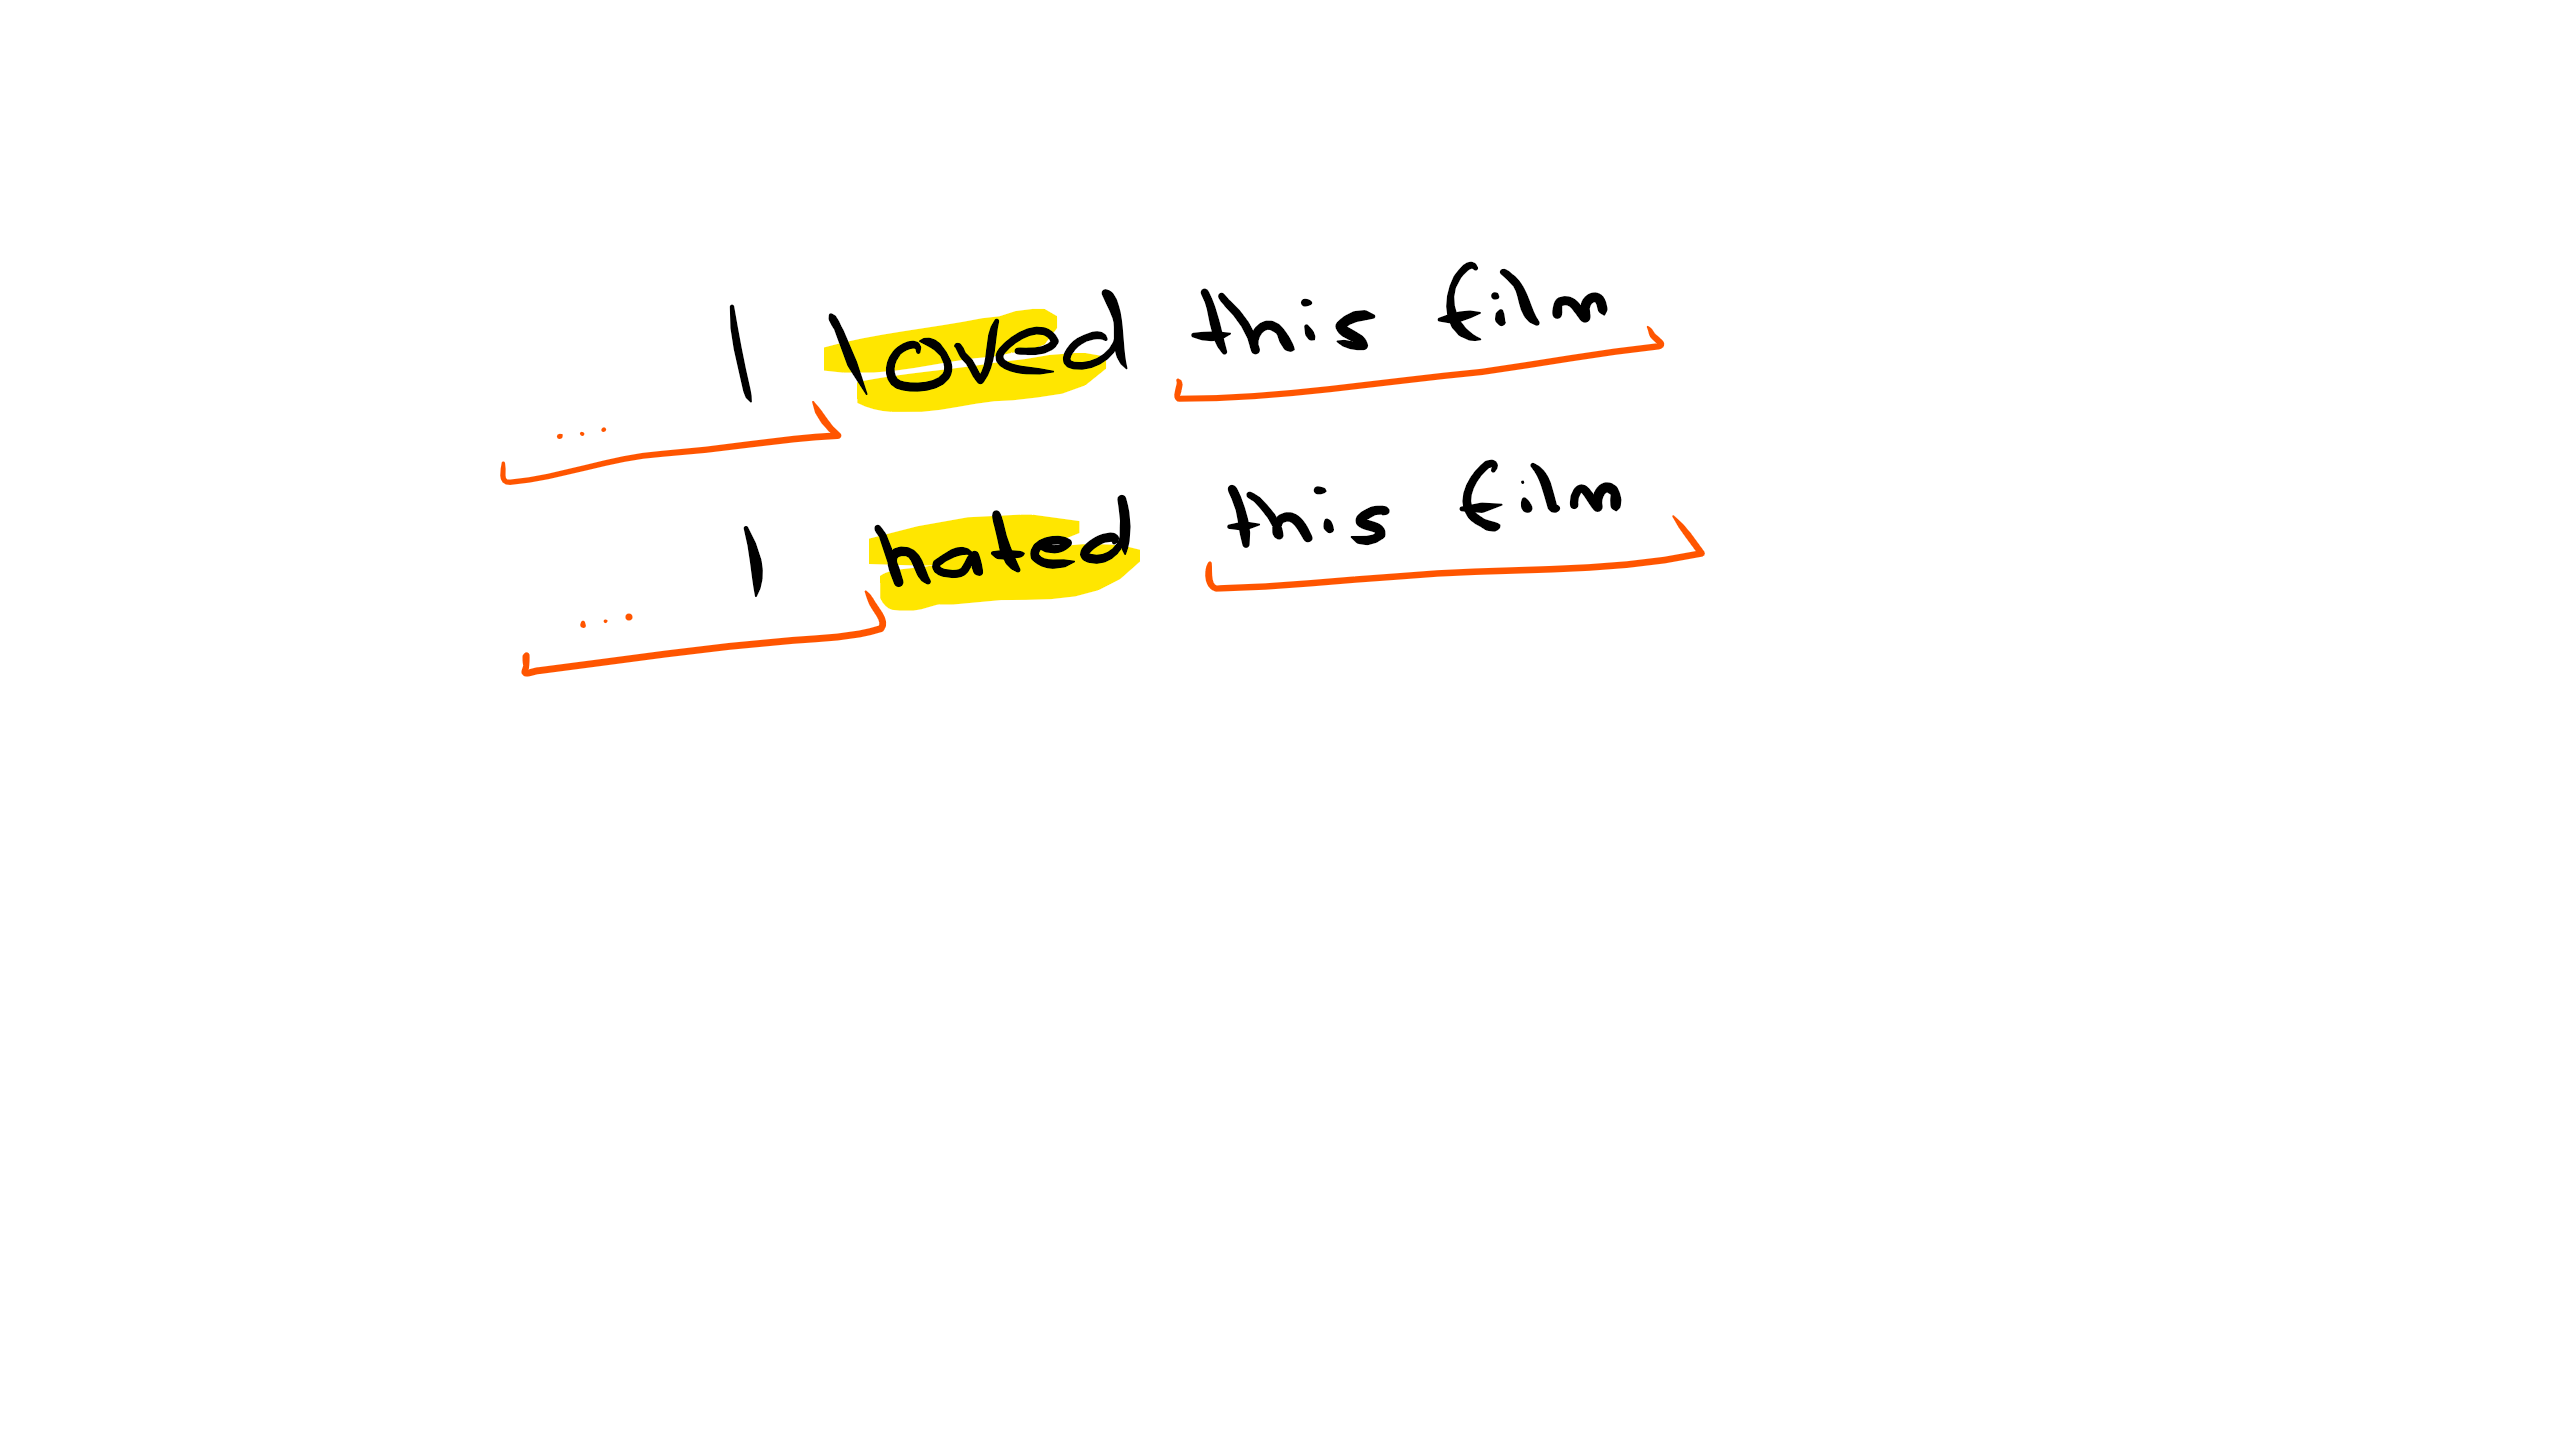 I loved this film
...
I hated this film
...